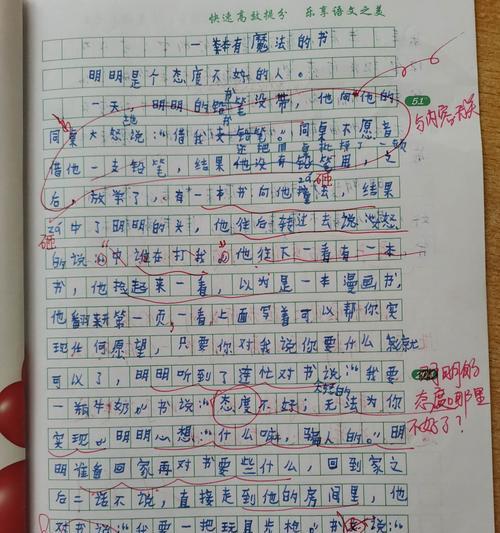 快速高效提分 乐享语文之美
一本有魔法的书
明明是个态度不好的人。
一天，明明的铅笔没带，他向他的
同桌大怒说：“借我支铅笔。”同桌不愿意
借他一支铅笔，结果他没有铅笔用，之
后，放学了，有一本书向他砸去，结果
砸中了明明的头，他往后转过去说
的说：“中谁在打我”他往下一看有一本
书，他捡起来一看，以为是一本漫画书，
他翻开第一页，一看，上面写着可以帮你实
现任何愿望，只要你对我说你要什么就
可以了，明明听到了连忙对书说：“我要
一瓶牛奶”书说：“态度不好，无法为你
实现”明明心想：“什么嘛，骗人的。”明
明准备回家再对书要些什么，回到家之
后二话不说，直接走到他的房间里，他
对书说：“我要一把玩具步枪”书说：
51
与内容无关
明明的
态度哪里
不好了？